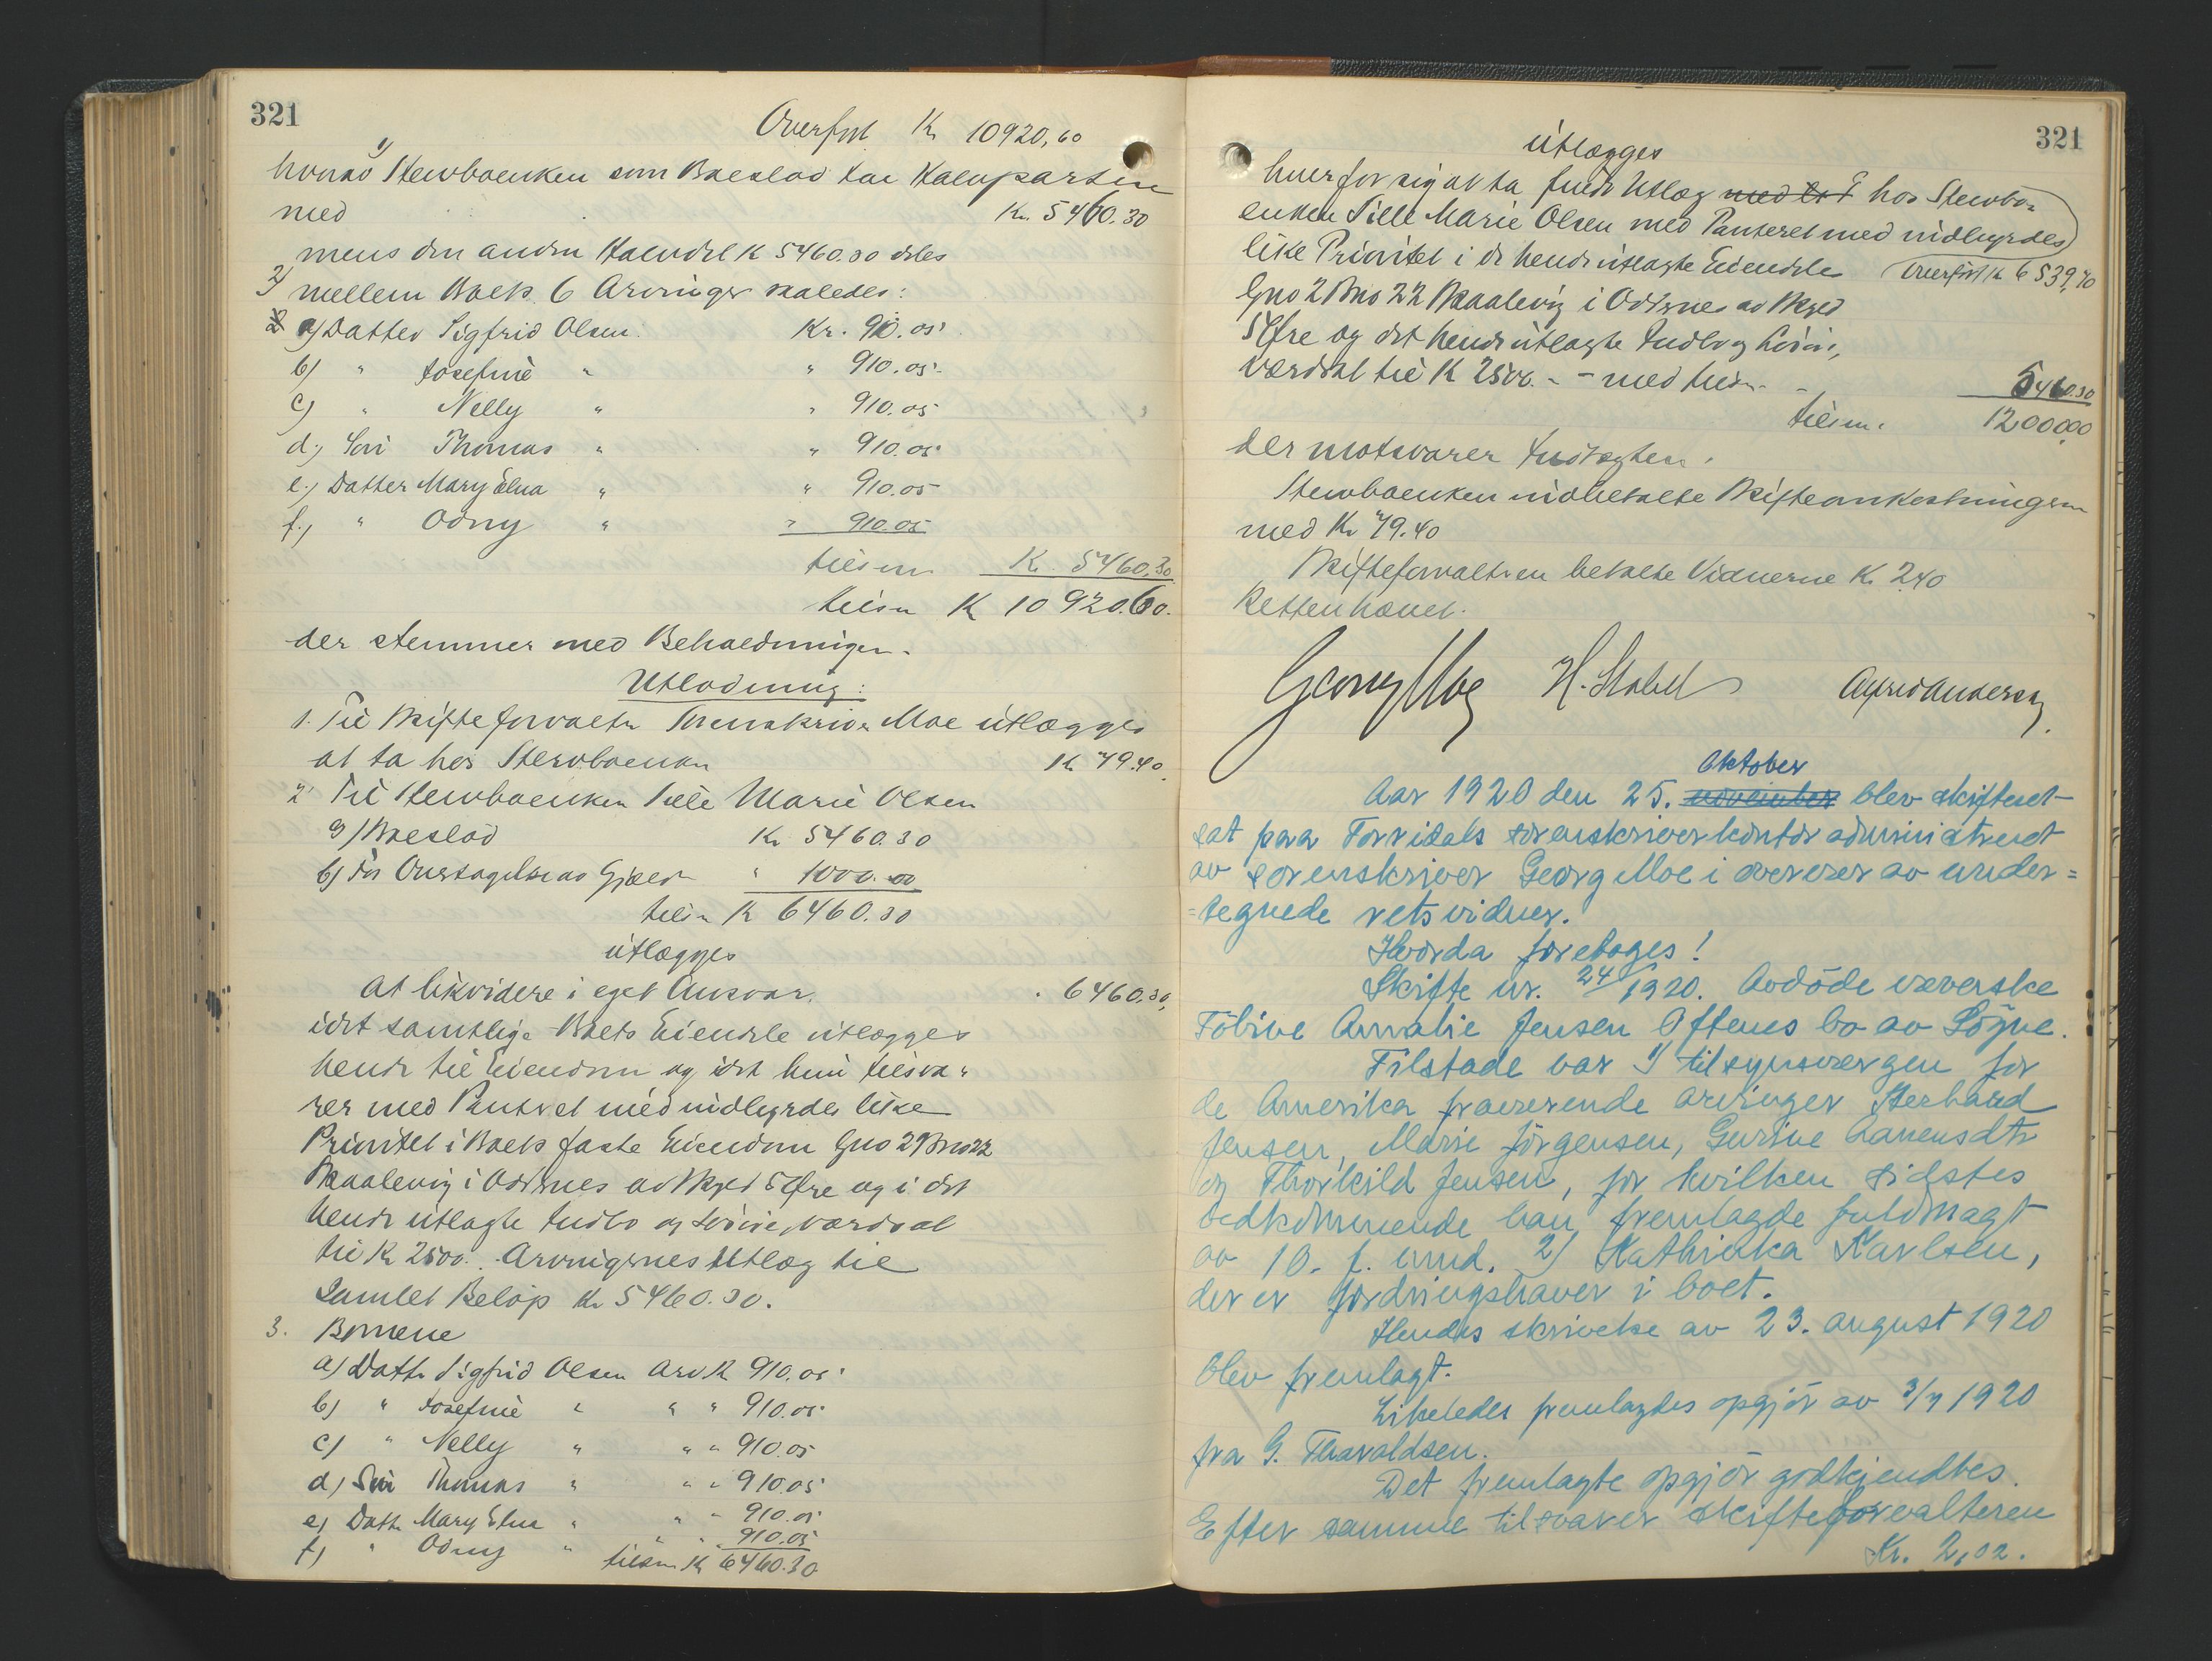 321
Overført Kr 10920,60
hvorav 1) Stervboenken som Boeslod tar Halvparten
med Kr. 5460.30
mens den anden Halvdel K 5460.30 deles
2) mellem Boets 6 Arvinger saaledes:
a) Datter Sigfrid Olsen. Kr. 910.05
b) " Josefine " " 910.05
c) " Nelly " " 910.05
d) Søn Thomas " " 910.05
e) Datter Mary Elna " " 910.05
f.) " Odny " " 910.05
tilsm K. 5460.30
tilsm K 10920.60.
der stemmer med Beholdningen.
Utlodning:
1. Til Skifteforvalter Sorenskriver Moe utlægges
at ta hos Stervboenken K 79.40.
2. Til Stervboenken Tille Marie Olsen
a) Boeslod Kr 5460.30
b) For Overtagelse av Gjæld " 1000.00
tilsm K 6460.30
utlægges
at likvidere i eget Ansvar. " 6460.30,
idet samtlige Boets Eiendele utlægges
hende til Eiendom og idet hun tilsva-
rer med Panteret med nidbyrdes like
Prioritet i Boets faste Eiendom Gno 2 Bno 22
Skaalevig i Oddernes av Skyld 5 Øre og i det
hende utlagte Indbo og Løsøre, værdsat
til K 2500.- Arvingernes Utlæg til
Samlet Beløp Kr 5460.30.
3. Børnene
a) Datter Sigfrid Olsen Arv K 910.05
b) " Josefine " " " 910.05
c) " Nelly " " " 910.05
d) Søn Thomas " " " 910.05
e) Datter Mary Elna " " " 910.05
f) " Odny " " " 910.05
tilsm K 6460.30
321
utlægges
hver for sig at ta fuldt Utlæg hos Stervbo-
enken Tille Marie Olsen med Panteret med nidbyrdes
like Prioritet i de hende utlagte Eiendele Overført K 6539,70
Gno 2 Bno 22 Skaalevig i Oddernes av Skyld
5 Øre og det hende utlagte Indbo og Løsøre,
værdsat til K 2500.- - med tilsm - 5460.30
tilsm. 12,000,00
der motsvarer Indtægten.
Stervboenken indbetalte Skifteomkostningerne
med Kr 79.40
Skifteforvalteren betalte Vidnerne K. 2.40
Retten hævet.
Georg Moe H. Stabell Alfred Andersen
Oktober
Aar 1920 den 25. november blev skifteret
sat paa Torridals sorenskriverkontor administreret
av sorenskriver Georg Moe i overvær av under=
=tegnede retsvidner.
Hvorda foretoges!
Skifte nr. 24/1920. Avdøde væverske
Tobine Amalie Jensen Oftenes bo av Søgne.
Tilstede var 1) tilsynsværgen for
de Amerika fraværende arvinger Sterhard
Jensen, Marie Jørgensen, Gurine Aanensdtr
og Thorkild Jensen, for hvilken sidstes
vedkommende han fremlagde fuldmagt
av 10. f. mnd. 2) Kathinka Karlsen,
der er fordringshaver i boet.
Hendes skrivelse av 23. august 1920
blev fremlagt.
Likeledes fremlagdes opgjør av 3/7 1920
fra G. Thorvaldsen.
Det fremlagte opgjør godkjendtes.
Efter samme tilsvarer skifteforvalteren
Kr. 2,02.